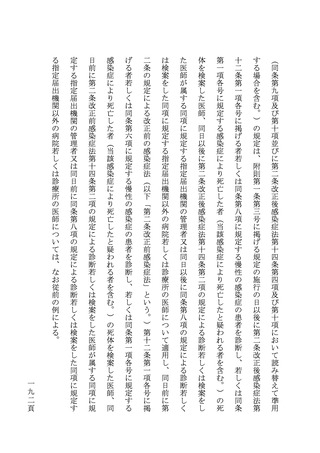 （同条第九項及び第十項並びに第二条改正後感染症法第十四条第四項及び第十項において読み替えて準用
する場合を含む。）の規定は、附則第一条第三号に掲げる規定の施行の日以後に第二条改正後感染症法第
十二条第一項各号に掲げる者若しくは同条第八項に規定する慢性の感染症の患者を診断し、若しくは同条
第一項各号に規定する感染症により死亡した者（当該感染症により死亡したと疑われる者を含む。）の死
体を検案した医師、同日以後に第二条改正後感染症法第十四条第二項の規定による診断若しくは検案をし
た医師が属する同項に規定する指定届出機関の管理者又は同日以後に同条第八項の規定による診断若しく
は検案をした同項に規定する指定届出機関以外の病院若しくは診療所の医師について適用し、同日前に第
二条の規定による改正前の感染症法（以下「第二条改正前感染症法」という。）第十二条第一項各号に掲
げる者若しくは同条第六項に規定する慢性の感染症の患者を診断し、若しくは同条第一項各号に規定する
感染症により死亡した者（当該感染症により死亡したと疑われる者を含む。）の死体を検案した医師、同
日前に第二条改正前感染症法第十四条第二項の規定による診断若しくは検案をした医師が属する同項に規
定する指定届出機関の管理者又は同日前に同条第八項の規定による診断若しくは検案をした同項に規定す
る指定届出機関以外の病院若しくは診療所の医師については、なお従前の例による。
一九二頁